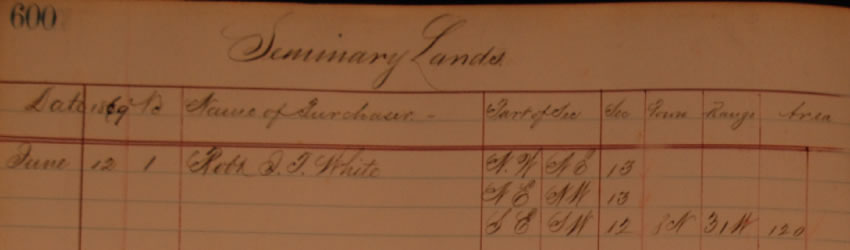 600
Seminary Lands.
Date 1869 No Name of Purchaser. Part of Sec Sec Town Range Area
June 12 1 Robt J. T. White N.W NE 13
NE NW 13
SE SW 12 8N 31W 120